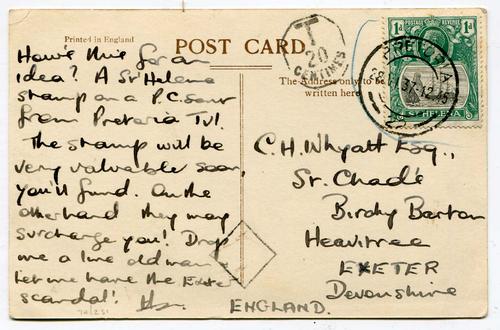 Printed in England
POST CARD.
T
20
CENTIMES
The Address only to be
written here
1d POSTAGE REVENUE 1d
ST HELENA
PRETORIA
37-12.15
22
How's this for an
idea? A St Helena
stamp on a P.C. sent
from Pretoria Tvl!
The stamp will be
very valuable soon,
you'll find. On the
other hand they may
surcharge you! Drop
me a line old man
Let me have the Exeter
scandal!
C.H. Whyatt Esq.,
St. Chad's
Birchy Barton
Heavitree
EXETER
Devonshire
ENGLAND.